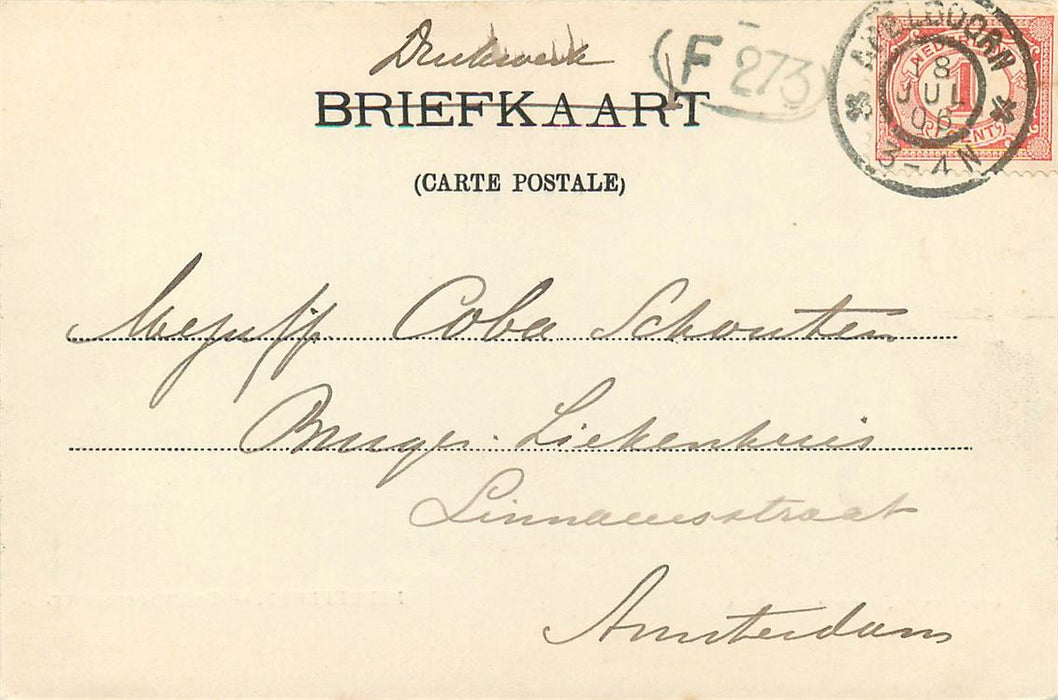 Drukwerk
BRIEFKAART
(CARTE POSTALE)
(F 273)
APELDOORN
18
JUL
06
3-4N
NEDERLAND
1
CENT
Mejuffr. Coba Schouten
Burger Ziekenhuis
Linnaeusstraat
Amsterdam